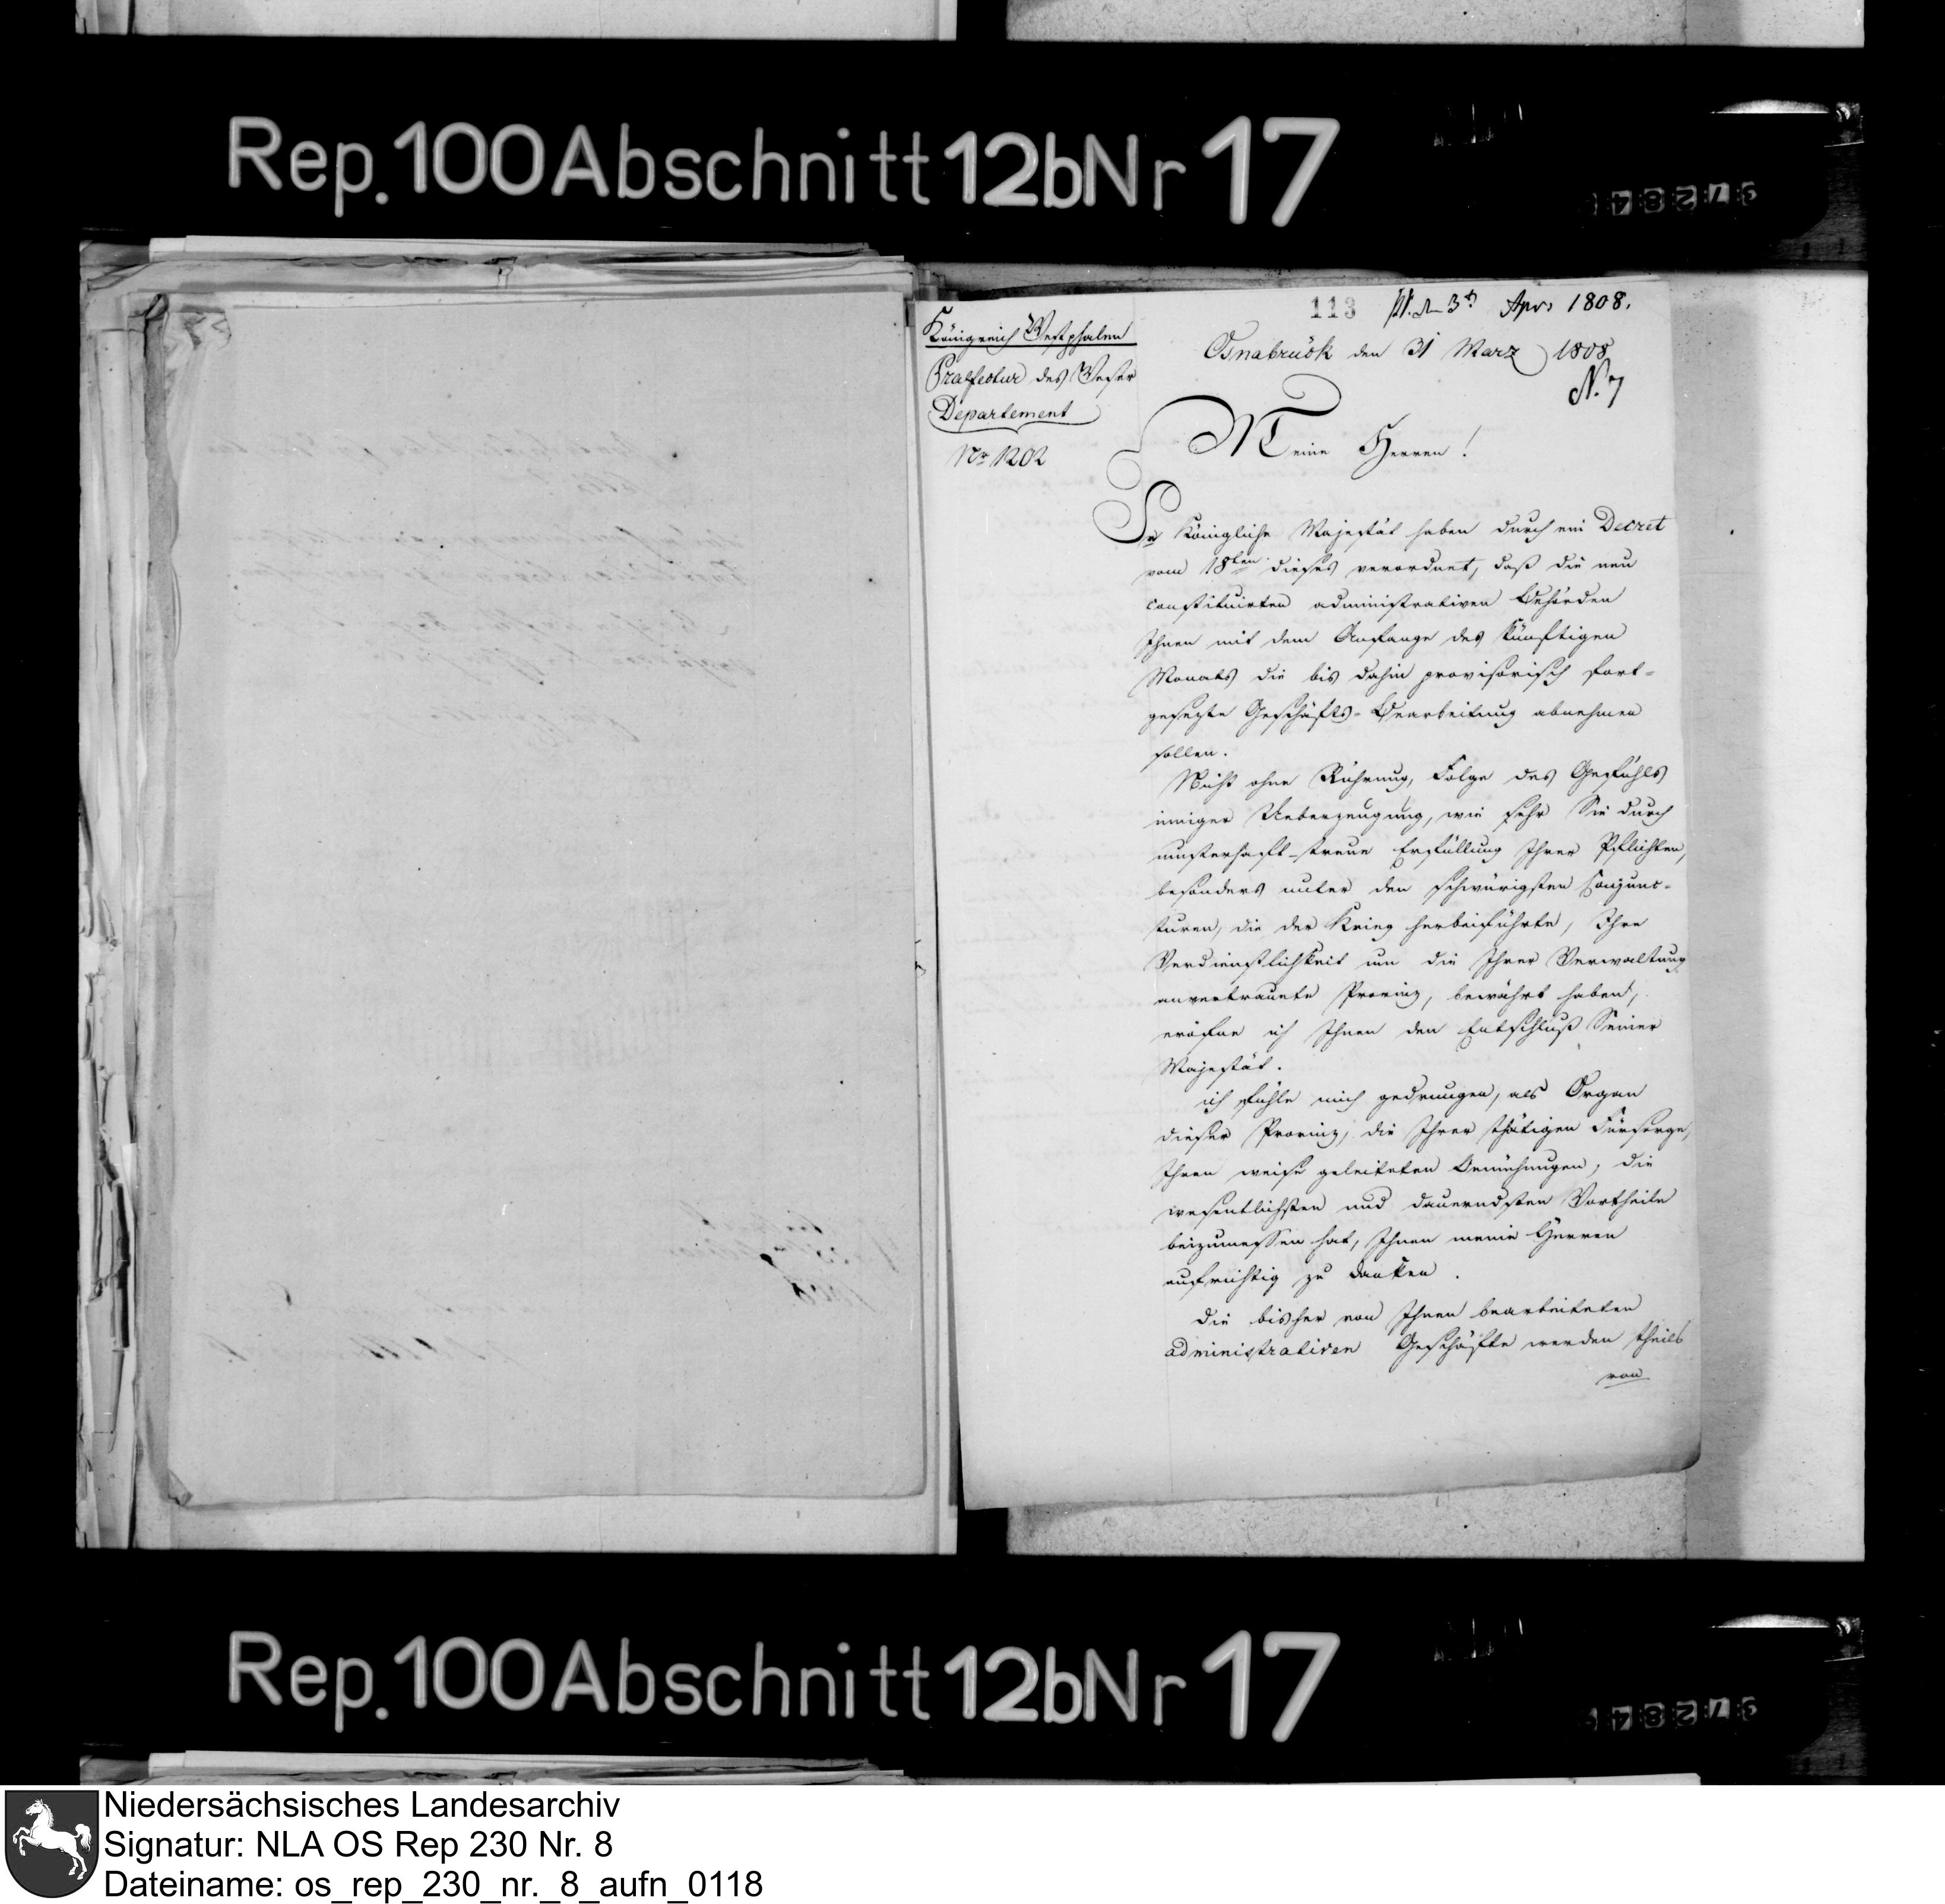 Rep. 100 Abschnitt 12b Nr 17
37284
113
Pr. den 3t Apr. 1808.
Königreich Westphalen
Praefectur des Weser
Departement
Nr 1202
Osnabrück den 31 Marz 1808
N. 7
Meine Herren!
Se Königliche Majestät haben durch ein Decret
vom 18ten dieses verordnet, daß die neu
constituirten administrativen Behörden
Ihnen mit dem Anfange des künftigen
Monats die bis dahin provisorisch fort-
gesezte Geschäfts-Bearbeitung abnehmen
sollen.
Nicht ohne Rührung, Folge des Gefühls
inniger Ueberzeugung, wie sehr Sie durch
musterhaft-treue Erfüllung Ihrer Pflichten,
besonders unter den schwürigsten Conjunc-
turen, die der Krieg herbeiführte, Ihre
Verdienstlichkeit um die Ihrer Verwaltung
anvertrauete Provinz, bewährt haben,
eröfne ich Ihnen den Entschluß Seiner
Majestät.
ich fühle mich gedrungen, als Organ
dieser Provinz, die Ihrer thätigen Fürsorge,
Ihren weise geleiteten Bemühungen, die
wesentlichsten und dauerndsten Vortheile
beizumessen hat, Ihnen meine Herren
aufrichtig zu danken.
Die bisher von Ihnen bearbeiteten
administrativen Geschäfte werden theils
von
Rep. 100 Abschnitt 12b Nr 17
37284
Niedersächsisches Landesarchiv
Signatur: NLA OS Rep 230 Nr. 8
Dateiname: os_rep_230_nr._8_aufn_0118